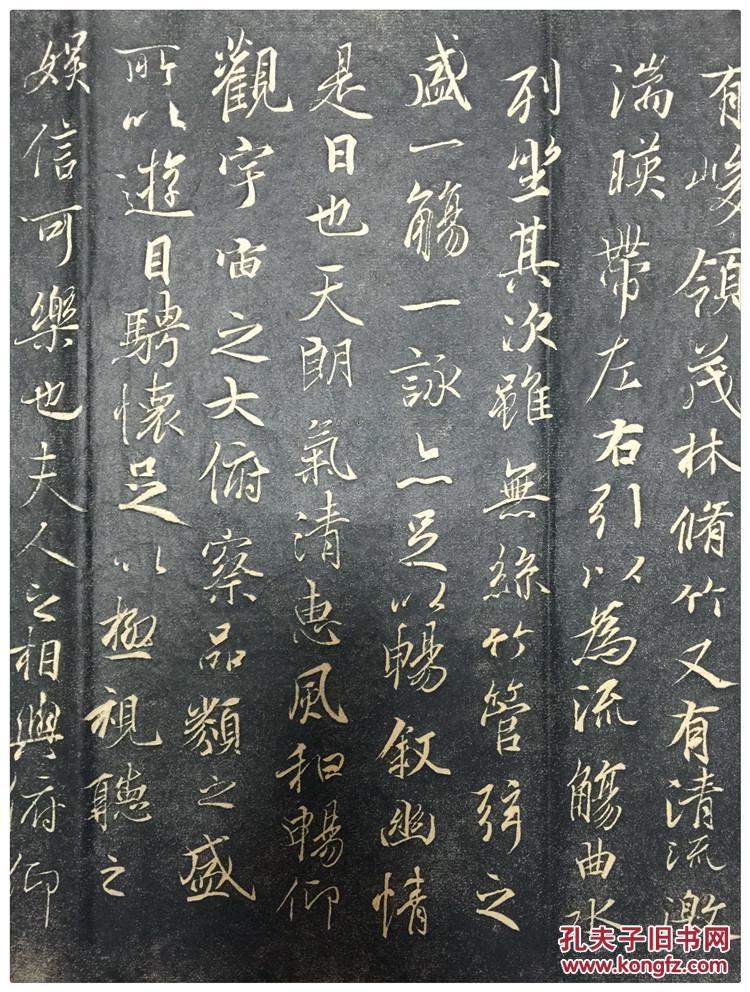 有峻領茂林脩竹又有清流激
湍暎帶左右引以為流觴曲水
列坐其次雖無絲竹管弦之
盛一觴一詠亦足以暢敘幽情
是日也天朗氣清惠風和暢仰
觀宇宙之大俯察品類之盛
所以遊目騁懷足以極視聽之
娛信可樂也夫人之相與俯仰
孔夫子旧书网
www.kongfz.com